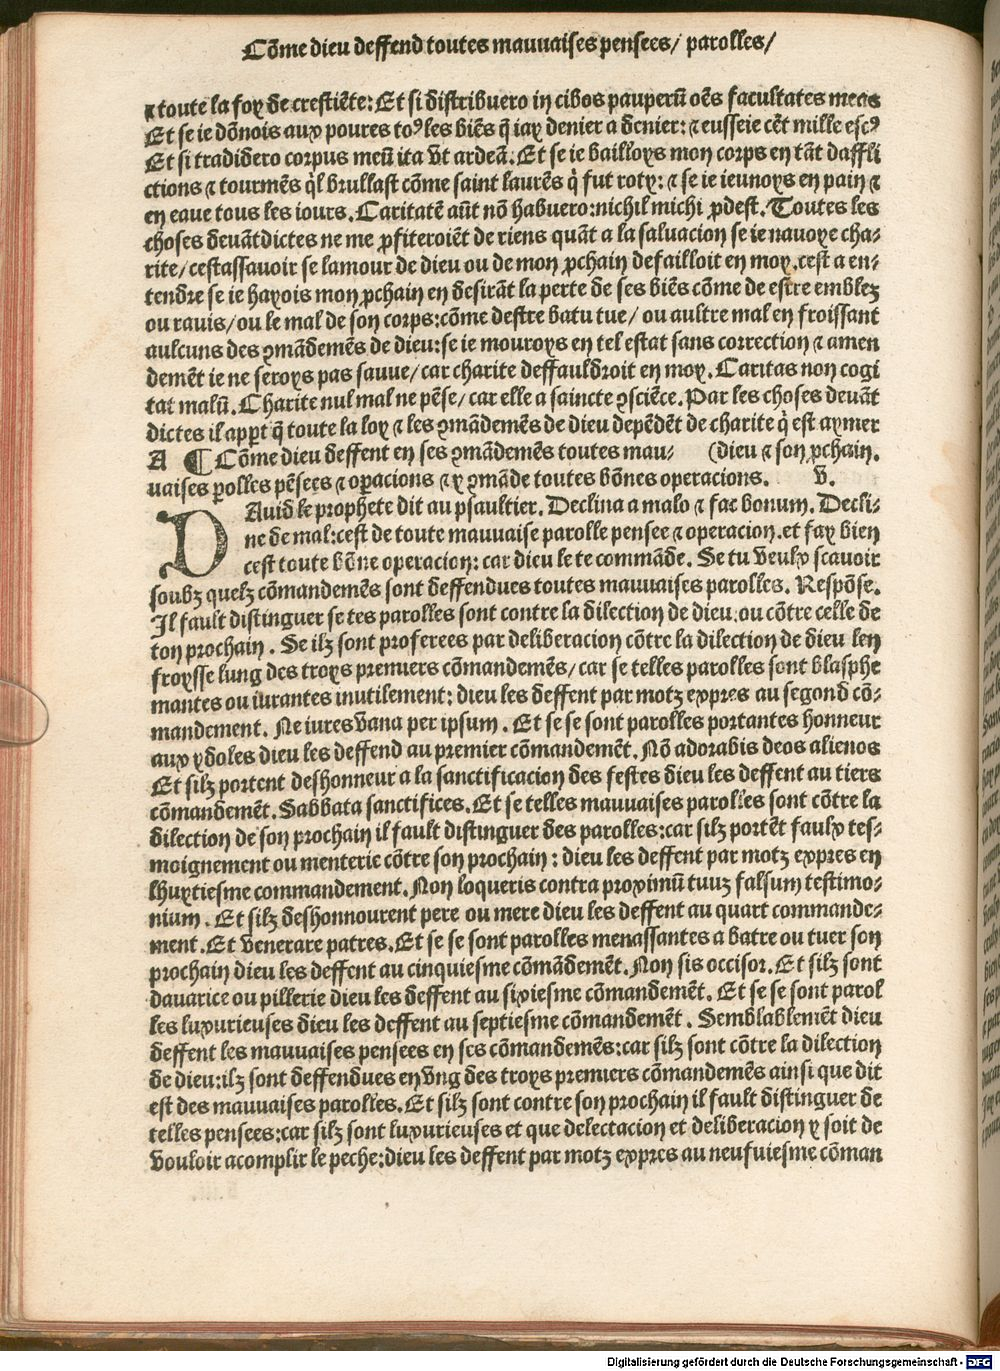 Cõme dieu deffend toutes mauvaises pensees/ parolles/
⁊ toute la foy de crestiẽte: Et si distribuero in cibos pauperũ oẽs facultates meas
Et se ie dõnois aux poures toꝰ les biẽs q̃ iay denier a denier: ⁊ eusseie cẽt mille escꝰ
Et si tradidero corpus meũ ita vt ardeã. Et se ie bailloys mon corps en tãt daffli
ctions ⁊ tourmẽs q̃l brullast cõme saint laurẽs q̃ fut roty: ⁊ se ie ieunoys en pain ⁊
en eaue tous les iours. Caritatẽ aũt nõ habuero: nichil michi ꝓdest. Toutes les
choses devãtdictes ne me ꝓfiteroiẽt de riens quãt a la salvacion se ie navoye cha-
rite/ cestassavoir se lamour de dieu ou de mon ꝓchain defailloit en moy. cest a en-
tendre se ie hayois mon ꝓchain en desirãt la perte de ses biẽs cõme de estre emblez
ou ravis/ ou le mal de son corps: cõme destre batu tue/ ou aultre mal en froissant
aulcuns des ꝯmãdemẽs de dieu: se ie mouroys en tel estat sans correction ⁊ amen
demẽt ie ne seroys pas sauve/ car charite deffauldroit en moy. Caritas non cogi
tat malũ. Charite nul mal ne pẽse/ car elle a saincte ꝯsciẽce. Par les choses devãt
dictes il apꝑt q̃ toute la loy ⁊ les ꝯmãdemẽs de dieu depẽdẽt de charite q̃ est aymer
A ¶ Cõme dieu deffent en ses ꝯmãdemẽs toutes mau- (dieu ⁊ son ꝓchain.
vaises ꝑolles pẽsees ⁊ oꝑacions ⁊ y ꝯmãde toutes bõnes operacions. v.
DAuid le prophete dit au psaultier. Declina a malo ⁊ fac bonum. Decli-
ne de mal: cest de toute mauvaise parolle pensee ⁊ operacion. et fay bien
cest toute bõne operacion: car dieu le te commãde. Se tu veulx scavoir
soubz quelz cõmandemẽs sont deffendues toutes mauvaises parolles. Respõse.
Il fault distinguer se tes parolles sont contre la dilection de dieu. ou cõtre celle de
ton prochain. Se ilz sont proferees par deliberacion cõtre la dilection de dieu len
froysse lung des troys premiers cõmandemẽs/ car se telles parolles sont blasphe
mantes ou iurantes inutilement: dieu les deffent par motz expres au segond cõ-
mandement. Ne iures vana per ipsum. Et se se sont parolles portantes honneur
aux ydoles dieu les deffend au premier cõmandemẽt. Nõ adorabis deos alienos
Et silz portent deshonneur a la sanctificacion des festes dieu les deffent au tiers
cõmandemẽt. Sabbata sanctifices. Et se telles mauvaises parolles sont cõtre la
dilection de son prochain il fault distinguer des parolles: car silz portẽt faulx tes-
moignement ou menterie cõtre son prochain: dieu les deffent par motz expres en
lhuytiesme commandement. Non loqueris contra proximũ tuuz falsum testimo-
nium. Et silz deshonnourent pere ou mere dieu les deffent au quart commande-
ment. Et venerare patres. Et se se sont parolles menassantes a batre ou tuer son
prochain dieu les deffent au cinquiesme cõmãdemẽt. Non sis occisor. Et silz sont
davarice ou pillerie dieu les deffent au sixiesme cõmandemẽt. Et se se sont parol
les luxurieuses dieu les deffent au septiesme cõmandemẽt. Semblablemẽt dieu
deffent les mauvaises pensees en ses cõmandemẽs: car silz sont cõtre la dilection
de dieu: ilz sont deffendues en vng des troys premiers cõmandemẽs ainsi que dit
est des mauvaises parolles. Et silz sont contre son prochain il fault distinguer de
telles pensees: car silz sont luxurieuses et que delectacion et deliberacion y soit de
vouloir acomplir le peche: dieu les deffent par motz expres au neufuiesme cõman
Digitalisierung gefördert durch die Deutsche Forschungsgemeinschaft - DFG